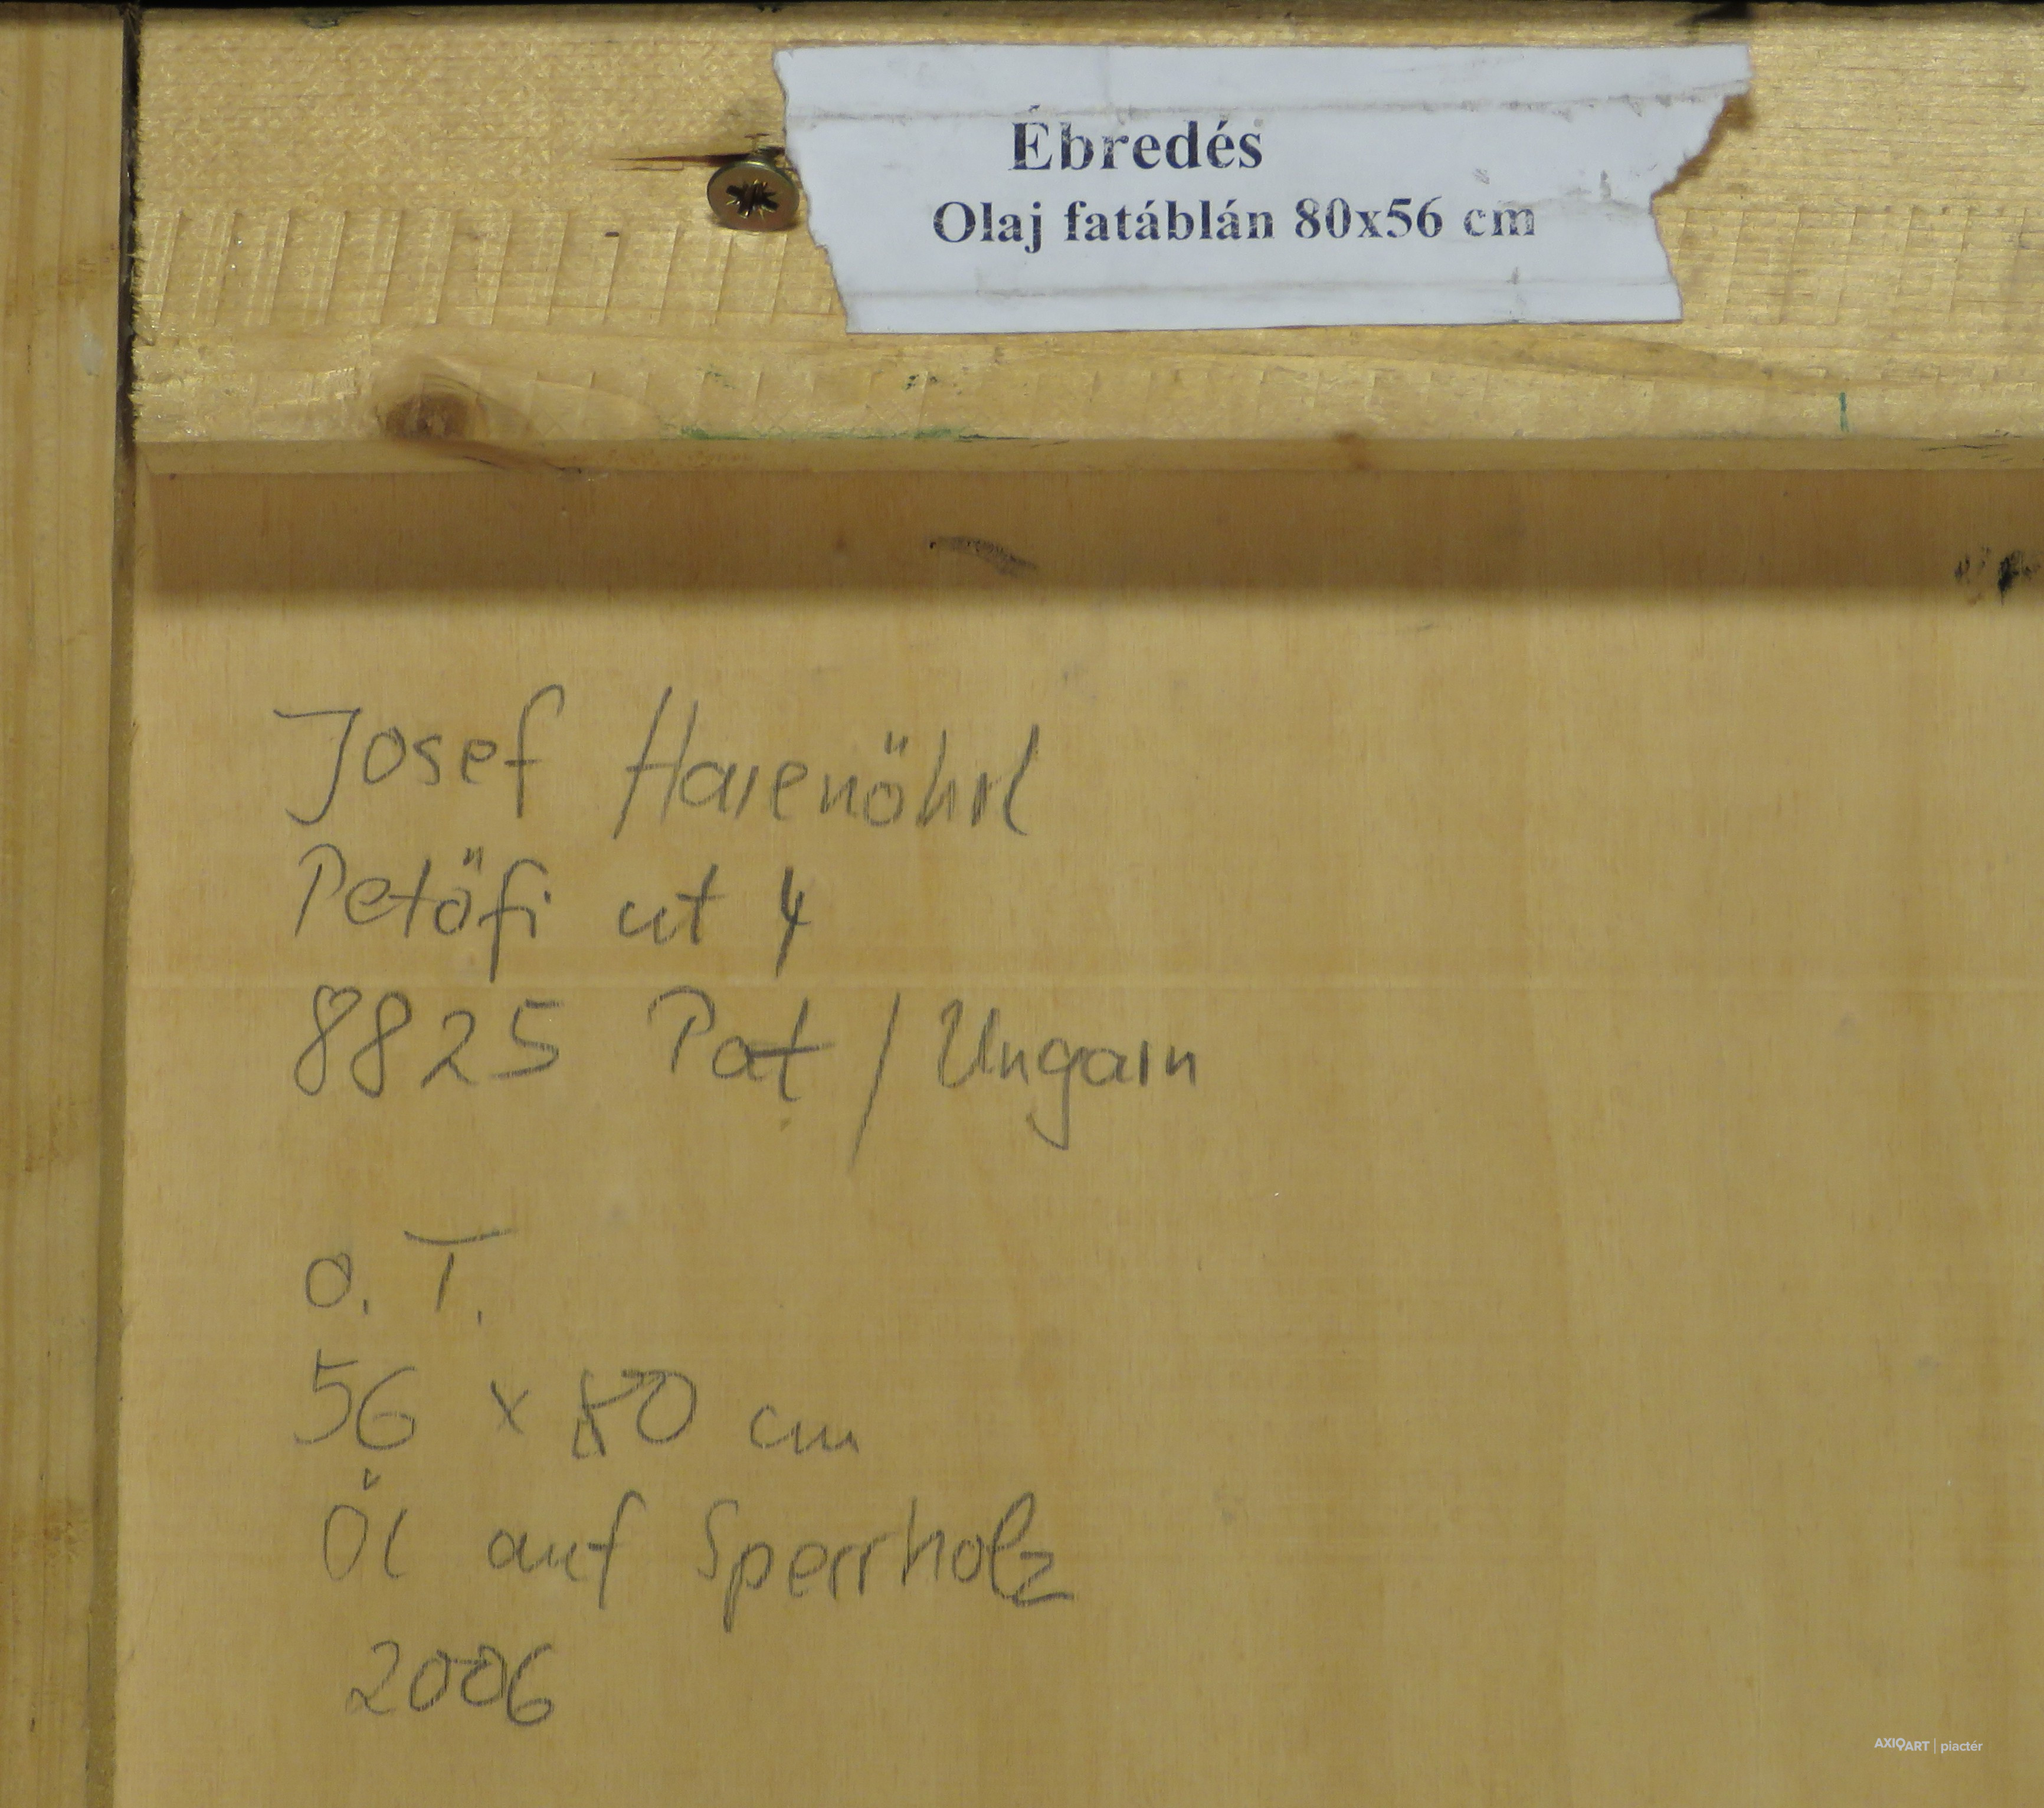 Ébredés
Olaj fatáblán 80x56 cm
Josef
Petöfi ut 4
8825 Pat / Ungarn
O. T.
56 x 80 cm
Öl auf Sperrholz
2006
AXIOART | piactér